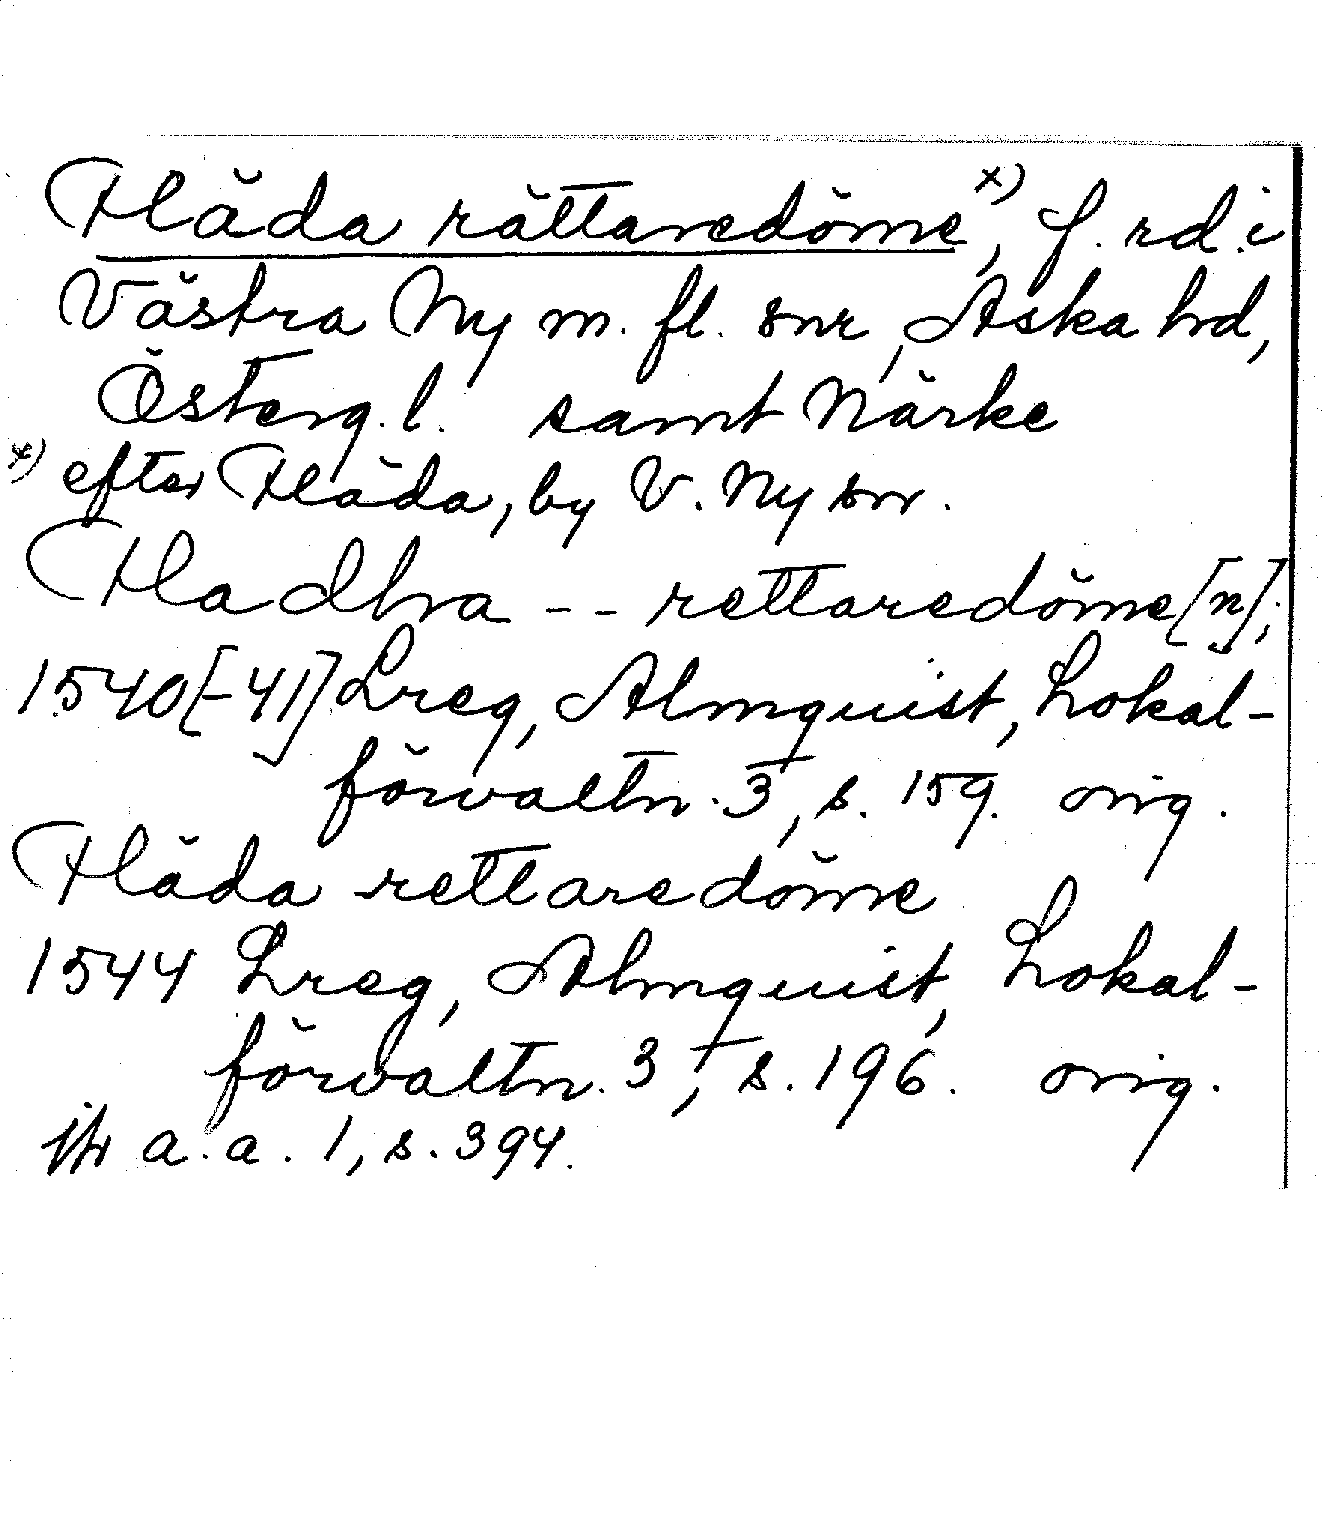 Fläda rättaredöme x), f. rd. i
Västra Ny m. fl. snr, Aska hd,
Österg. l. samt Närke
x) efter Fläda, by V. Ny sn.
Fladhra -- rettaredöme[n];
1540[-41] Lreg, Almquist, Lokal-
förvaltn. 3, s. 159. orig.
Fläda rettaredöme
1544 Lreg, Almquist, Lokal-
förvaltn. 3, s. 196. orig.
jfr a. a. 1, s. 394.